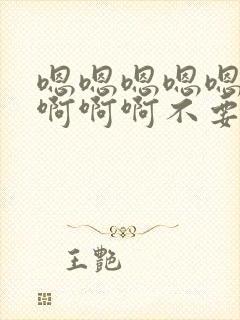 嗯嗯嗯嗯嗯
啊啊啊不要
王艷